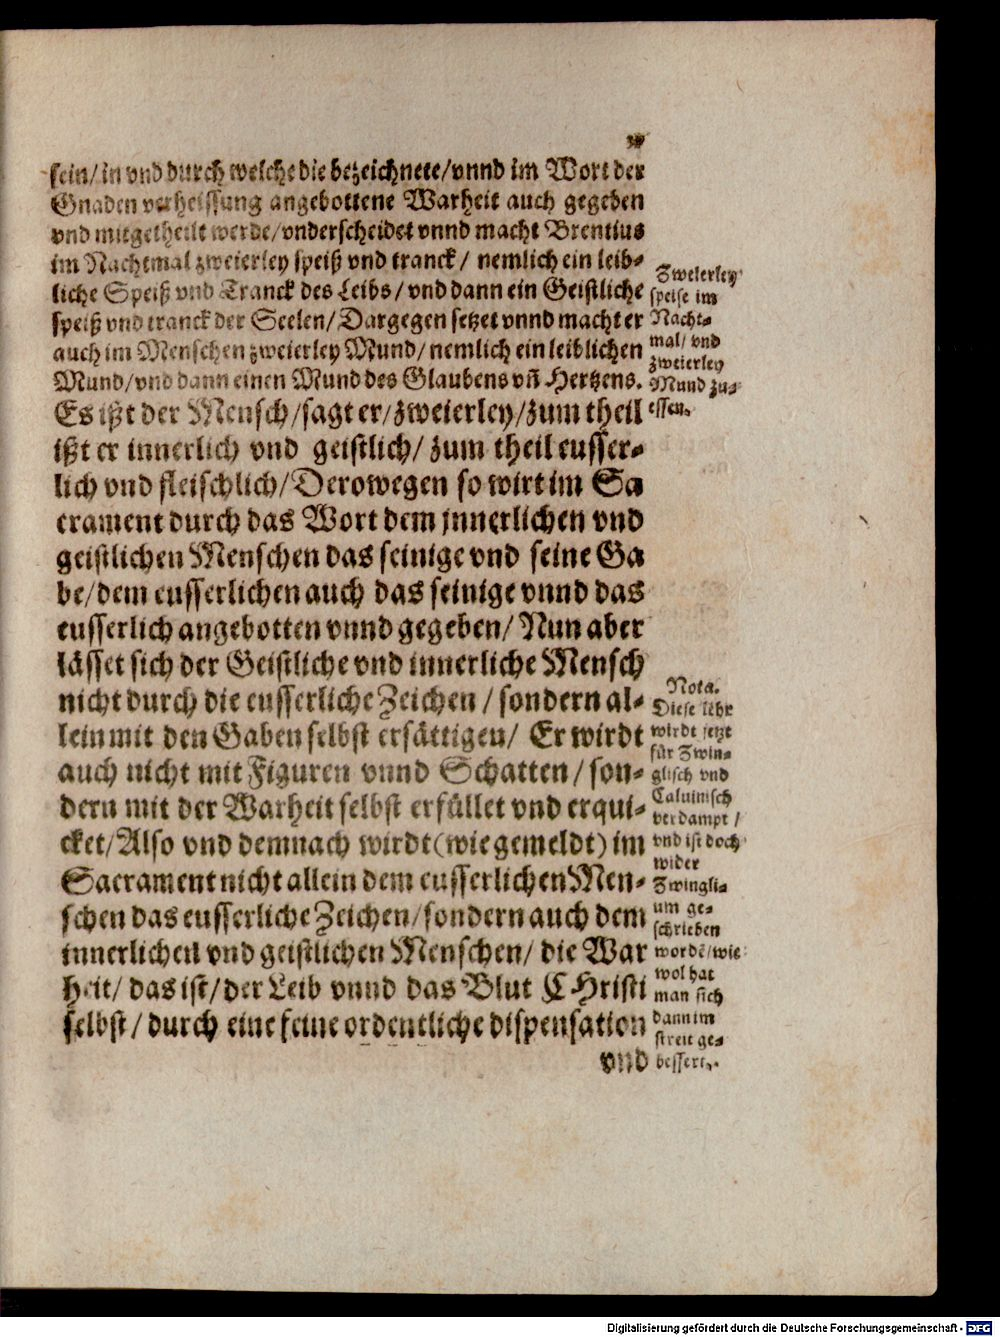 sein/ in vnd durch welche die bezeichnete/ vnnd im Wort der
Gnaden verheissung angebottene Warheit auch gegeben
vnd mitgetheilt werde/ vnderscheidet vnnd macht Brentius
im Nachtmal zweierley speiß vnd tranck/ nemlich ein leib-
liche Speiß vnd Tranck des Leibs/ vnd dann ein Geistliche
speiß vnd tranck der Seelen/ Dargegen setzet vnnd macht er
auch im Menschen zweierley Mund/ nemlich ein leiblichen
Mund/ vnd dann einen Mund des Glaubens vñ Hertzens.
Es ißt der Mensch/ sagt er/ zweierley/ zum theil
ißt er innerlich vnd geistlich/ zum theil eusser-
lich vnd fleischlich/ Derowegen so wirt im Sa
crament durch das Wort dem jnnerlichen vnd
geistlichen Menschen das seinige vnd seine Ga
be/ dem eusserlichen auch das seinige vnnd das
eusserlich angebotten vnnd gegeben/ Nun aber
lässet sich der Geistliche vnd innerliche Mensch
nicht durch die eusserliche Zeichen/ sondern al-
lein mit den Gaben selbst ersättigen/ Er wirdt
auch nicht mit Figuren vnnd Schatten/ son-
dern mit der Warheit selbst erfüllet vnd erqui-
cket/ Also vnd demnach wirdt (wie gemeldt) im
Sacrament nicht allein dem eusserlichen Men-
schen das eusserliche Zeichen/ sondern auch dem
innerlichen vnd geistlichen Menschen/ die War
heit/ das ist/ der Leib vnnd das Blut CHristi
selbst/ durch eine feine ordentliche dispensation
vnd
Zweierley
speise im
Nacht-
mal/ vnd
zweierley
Mund zu-
essen.
Nota.
Diese lehr
wirdt jetzt
für Zwin-
glisch vnd
Caluinisch
verdampt/
vnd ist doch
wider
Zwingli-
um ge-
schrieben
wordẽ/ wie
wol hat
man sich
dann im
streit ge-
bessert.
Digitalisierung gefördert durch die Deutsche Forschungsgemeinschaft - DFG